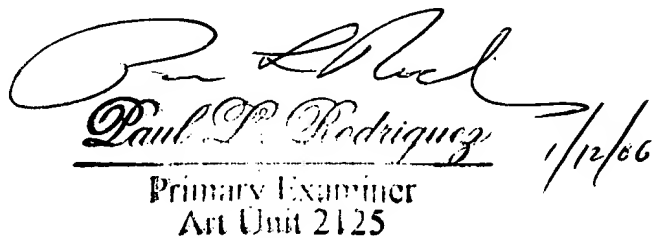 Paul L. Rodriguez 1/12/06
Primary Examiner
Art Unit 2125